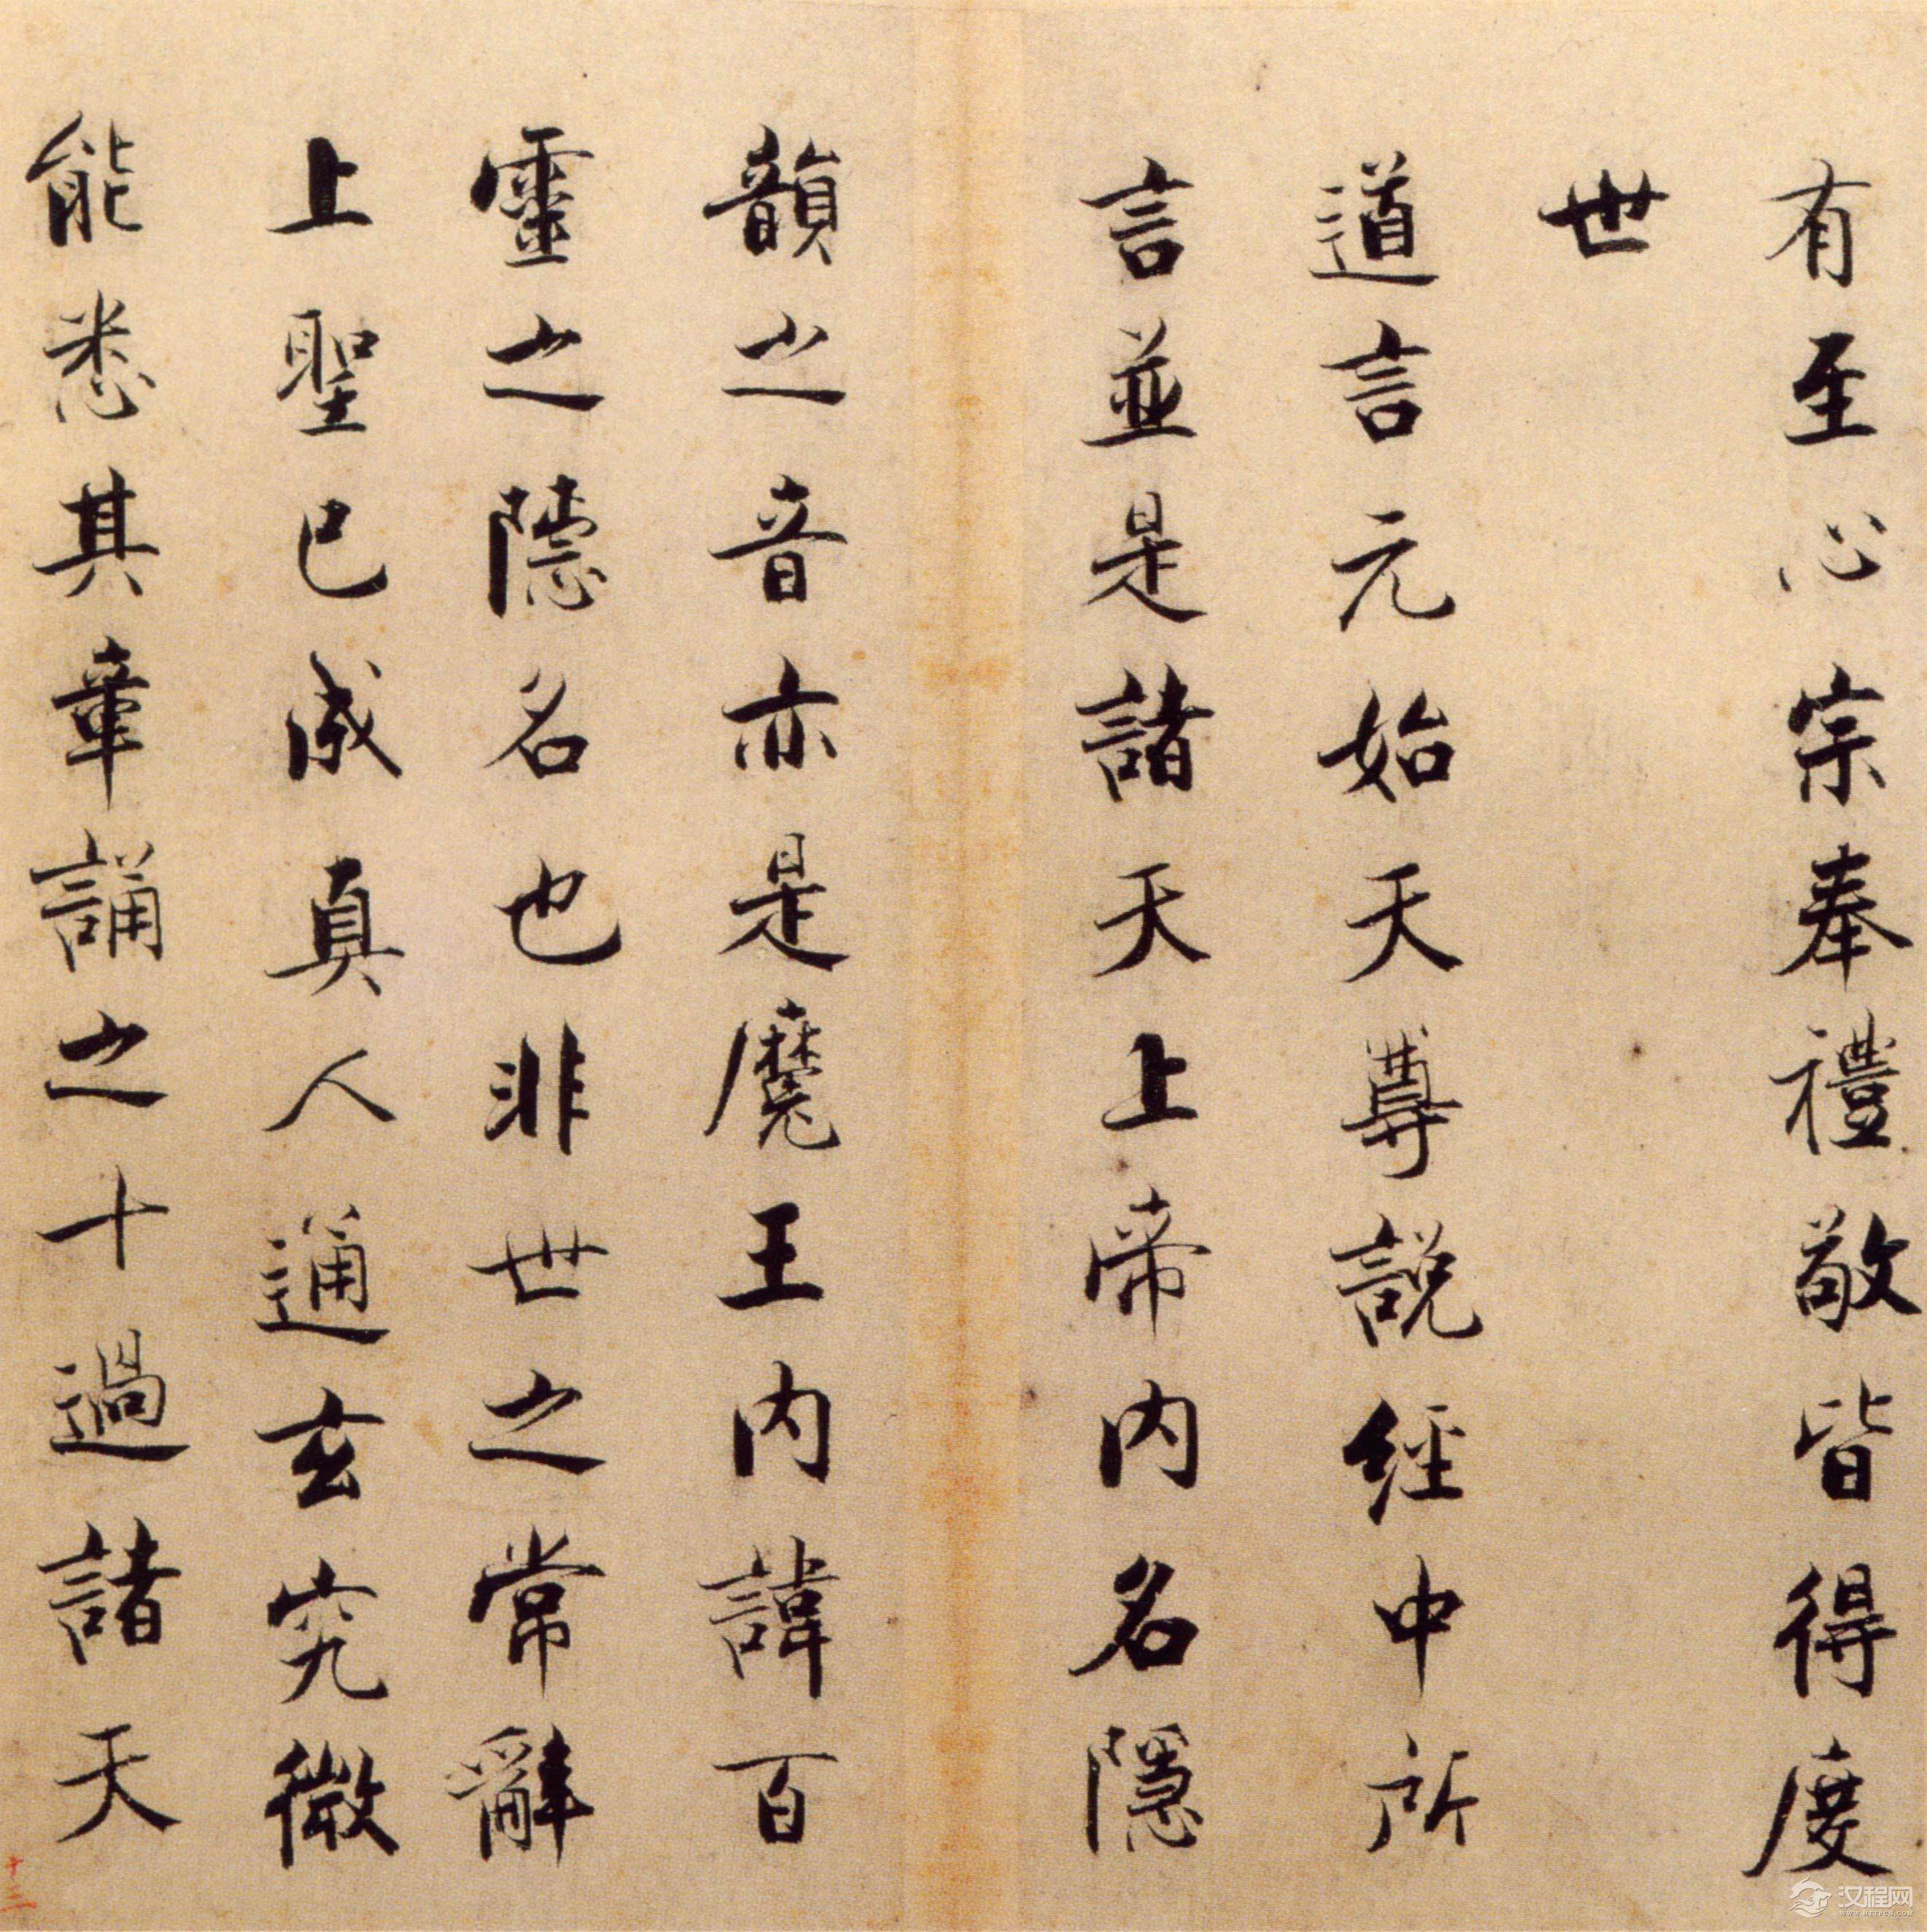 有至心宗奉禮敬皆得度
世
道言元始天尊説經中所
言並是諸天上帝内名隱
韻之音亦是魔王内諱百
靈之隱名也非世之常辭
上聖已成真人通玄究微
能悉其章誦之十過諸天
十三
汉程网
WWW.HTTPCN.COM